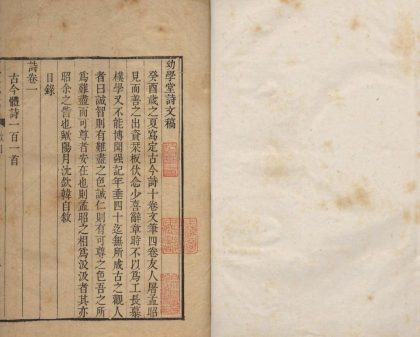 幼學堂詩文稿
癸酉歲之夏寫定古今詩十卷文筆四卷友人屠孟昭
見而善之出資栞板伏念少喜辭章時不以爲工長業
樸學又不能博聞強記年垂四十迄無所成古之觀人
者曰誠智則有難盡之色誠仁則有可尊之色吾之所
爲難盡而可尊者安在也則孟昭之相爲汲汲者其亦
昭余之咎也歟陽月沈欽韓自敘
目錄
詩卷一
古今體詩一百一首